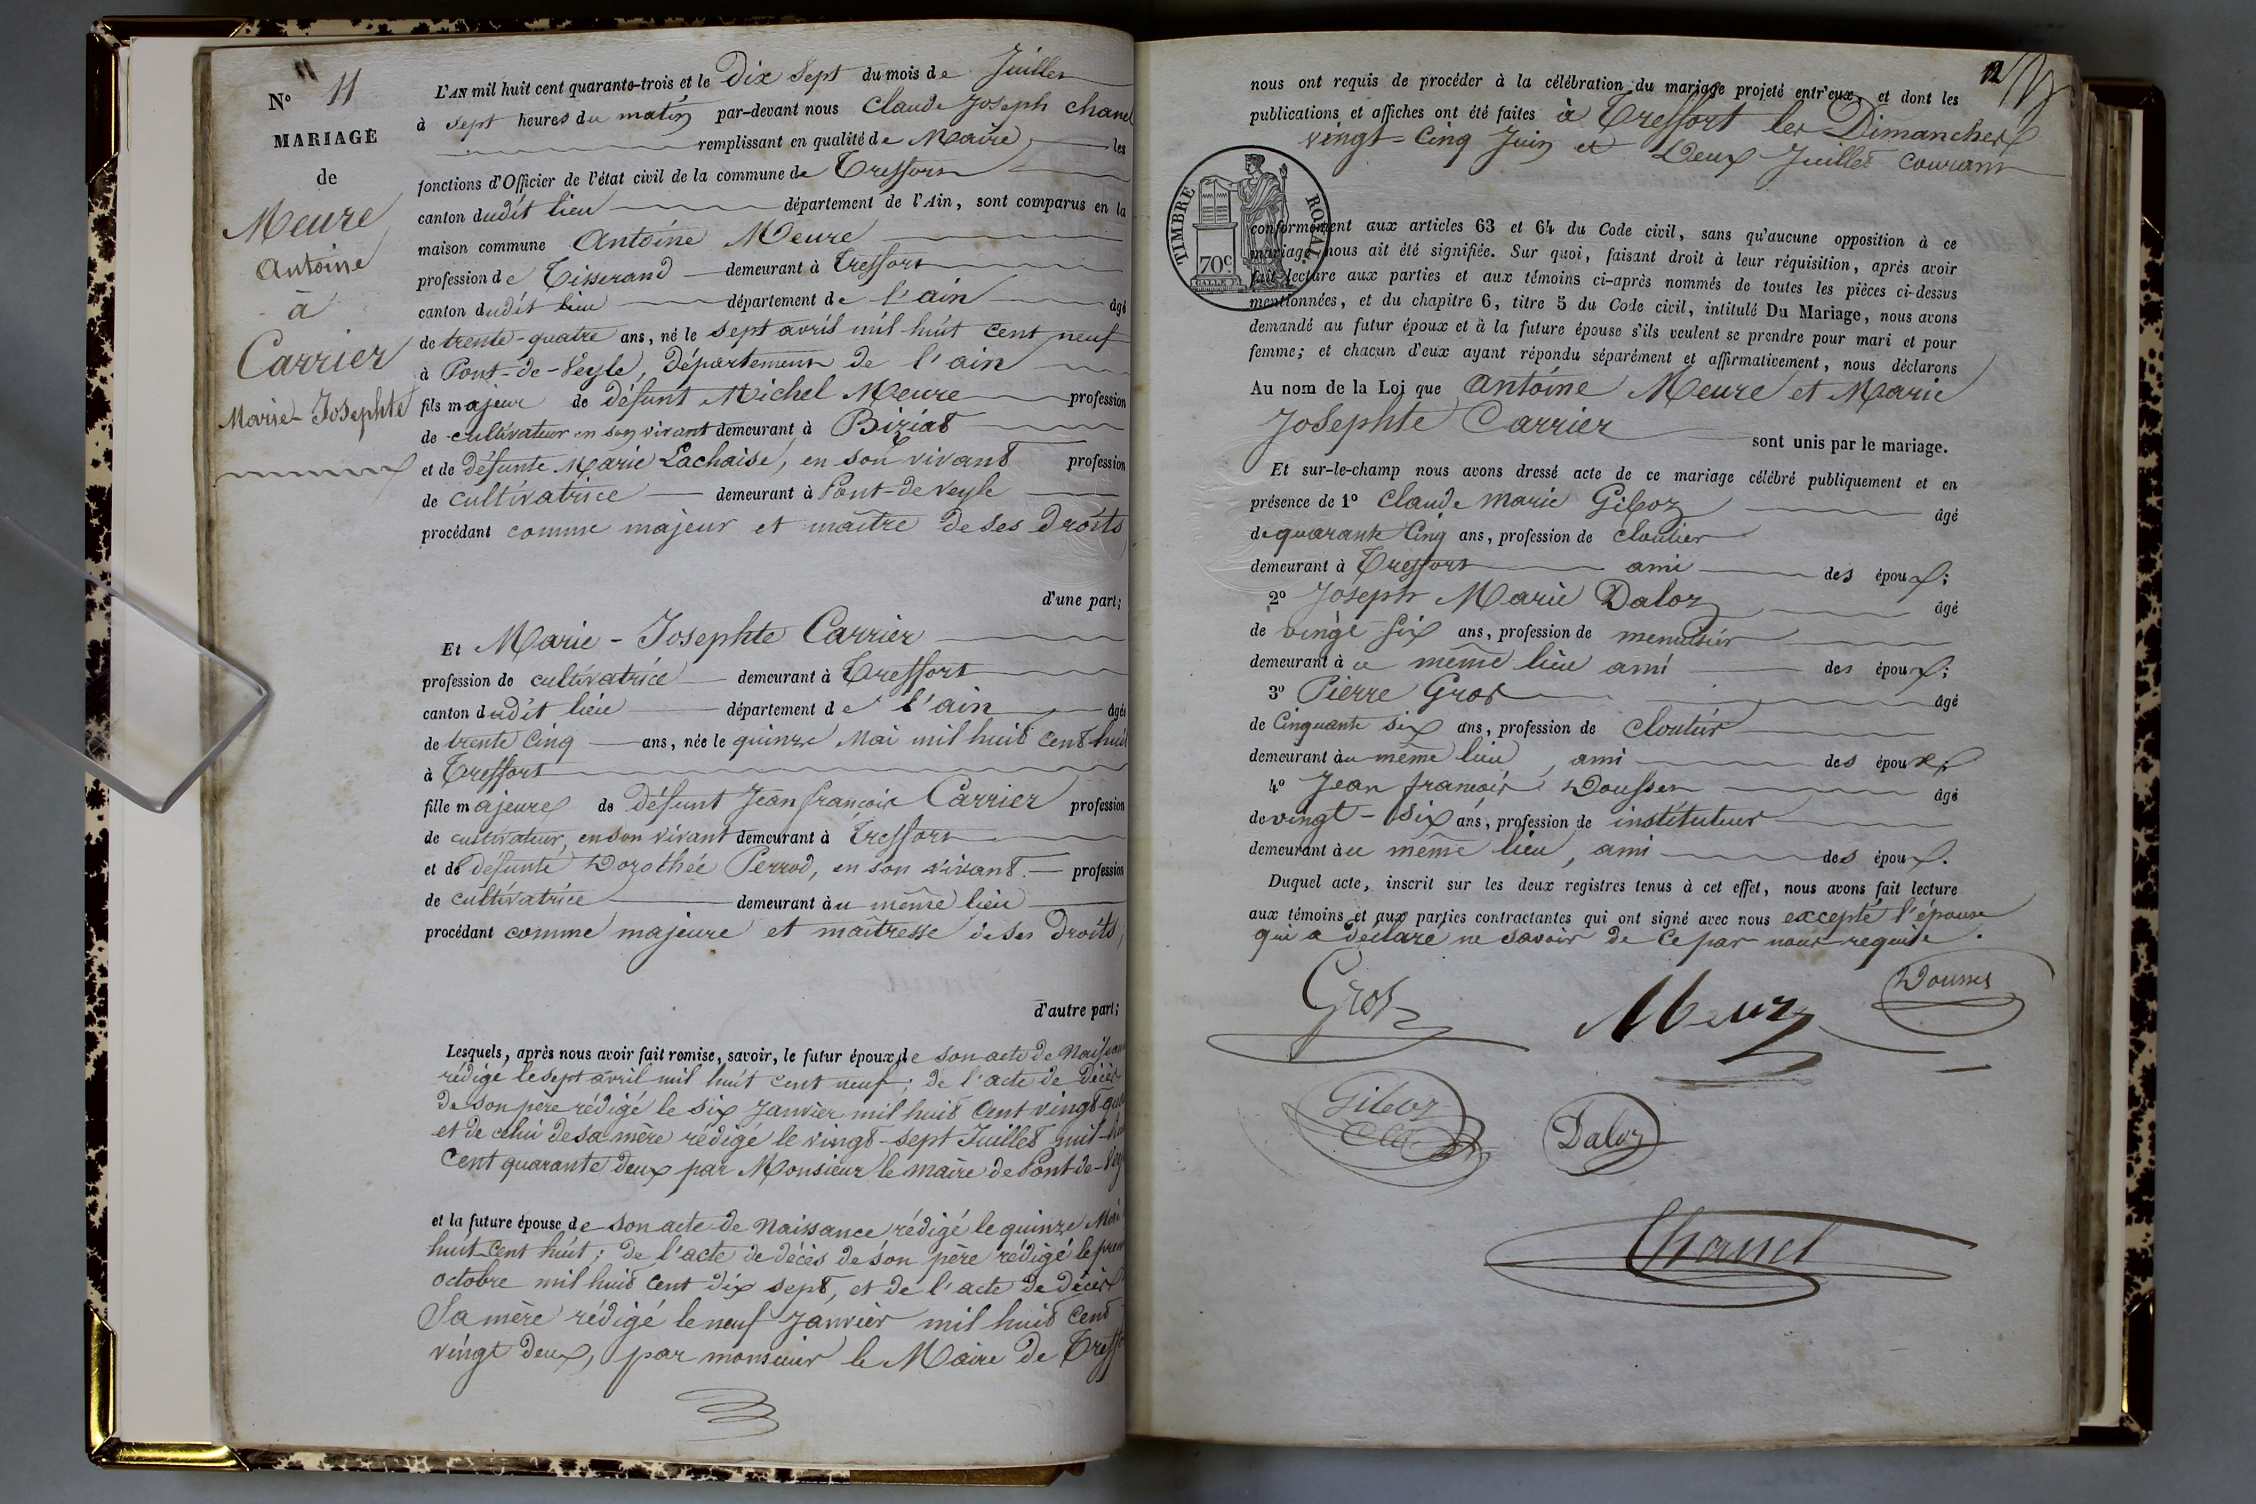 11
N° 11
MARIAGE
de
Meure
Antoine
à
Carrier
Marie-Josephte
L'AN mil huit cent quarante-trois et le Dix Sept du mois de Juillet
à sept heures du matin par-devant nous Claude Joseph Chanel
remplissant en qualité de Maire les
fonctions d'Officier de l'état civil de la commune de Treffort
canton dudit lieu département de l'Ain, sont comparus en la
maison commune Antoine Meure
profession de Tisserand demeurant à Treffort
canton dudit lieu département de l'ain âgé
de trente-quatre ans, né le sept avril mil huit cent neuf
à Pont-de-Veyle, Département de l'ain
fils majeur de défunt Michel Meure profession
de cultivateur en son vivant demeurant à Biziat
et de défunte Marie Lachaise, en son vivant profession
de cultivatrice demeurant à Pont-de-Veyle
procédant comme majeur et maître de ses droits
d'une part;
Et Marie-Josephte Carrier
profession de cultivatrice demeurant à Treffort
canton dudit lieu département de l'ain âgée
de trente cinq ans, née le quinze Mai mil huit cent huit
à Treffort
fille majeure de défunt Jean françois Carrier profession
de cultivateur, en son vivant demeurant à Treffort
et de défunte Dorothée Perrod, en son vivant. profession
de cultivatrice demeurant au même lieu
procédant comme majeure et maîtresse de ses droits,
d'autre part;
Lesquels, après nous avoir fait remise, savoir, le futur époux, de son acte de Naissan
rédigé le sept avril mil huit cent neuf; de l'acte de Décès
de son père rédigé le six Janvier mil huit cent vingt
et de celui de sa mère rédigé le vingt-sept Juillet mil
cent quarante deux par Monsieur le maire de Pont-de-Vey
et la future épouse, de son acte de Naissance rédigé le quinze Mai
huit cent huit; de l'acte de décès de son père rédigé le prem
octobre mil huit cent dix sept, et de l'acte de décès
Sa mère rédigé le neuf Janvier mil huit cent
vingt deux, par monsieur le Maire de Treff
12
nous ont requis de procéder à la célébration du mariage projeté entr'eux, et dont les
publications et affiches ont été faites à Treffort les Dimanches
vingt-cinq Juin et Deux Juillet courant
TIMBRE ROYAL
70c
conformément aux articles 63 et 64 du Code civil, sans qu'aucune opposition à ce
mariage nous ait été signifiée. Sur quoi, faisant droit à leur réquisition, après avoir
fait lecture aux parties et aux témoins ci-après nommés de toutes les pièces ci-dessus
mentionnées, et du chapitre 6, titre 5 du Code civil, intitulé Du Mariage, nous avons
demandé au futur époux et à la future épouse s'ils veulent se prendre pour mari et pour
femme; et chacun d'eux ayant répondu séparément et affirmativement, nous déclarons
Au nom de la Loi que Antoine Meure et Marie
Josephte Carrier sont unis par le mariage.
Et sur-le-champ nous avons dressé acte de ce mariage célébré publiquement et en
présence de 1° Claude Marie Giboz âgé
de quarante cinq ans, profession de cloutier
demeurant à Treffort ami des époux;
2° Joseph Marie Daloz âgé
de vingt six ans, profession de menuisier
demeurant à ce même lieu ami des époux;
3° Pierre Gros âgé
de Cinquante six ans, profession de cloutier
demeurant au même lieu, ami des époux
4° Jean françois Dousset âgé
de vingt-six ans, profession de instituteur
demeurant au même lieu, ami des époux.
Duquel acte, inscrit sur les deux registres tenus à cet effet, nous avons fait lecture
aux témoins et aux parties contractantes qui ont signé avec nous excepté l'épouse
qui a déclaré ne savoir de ce par nous requise.
Gros
Giboz
Daloz
Chanel